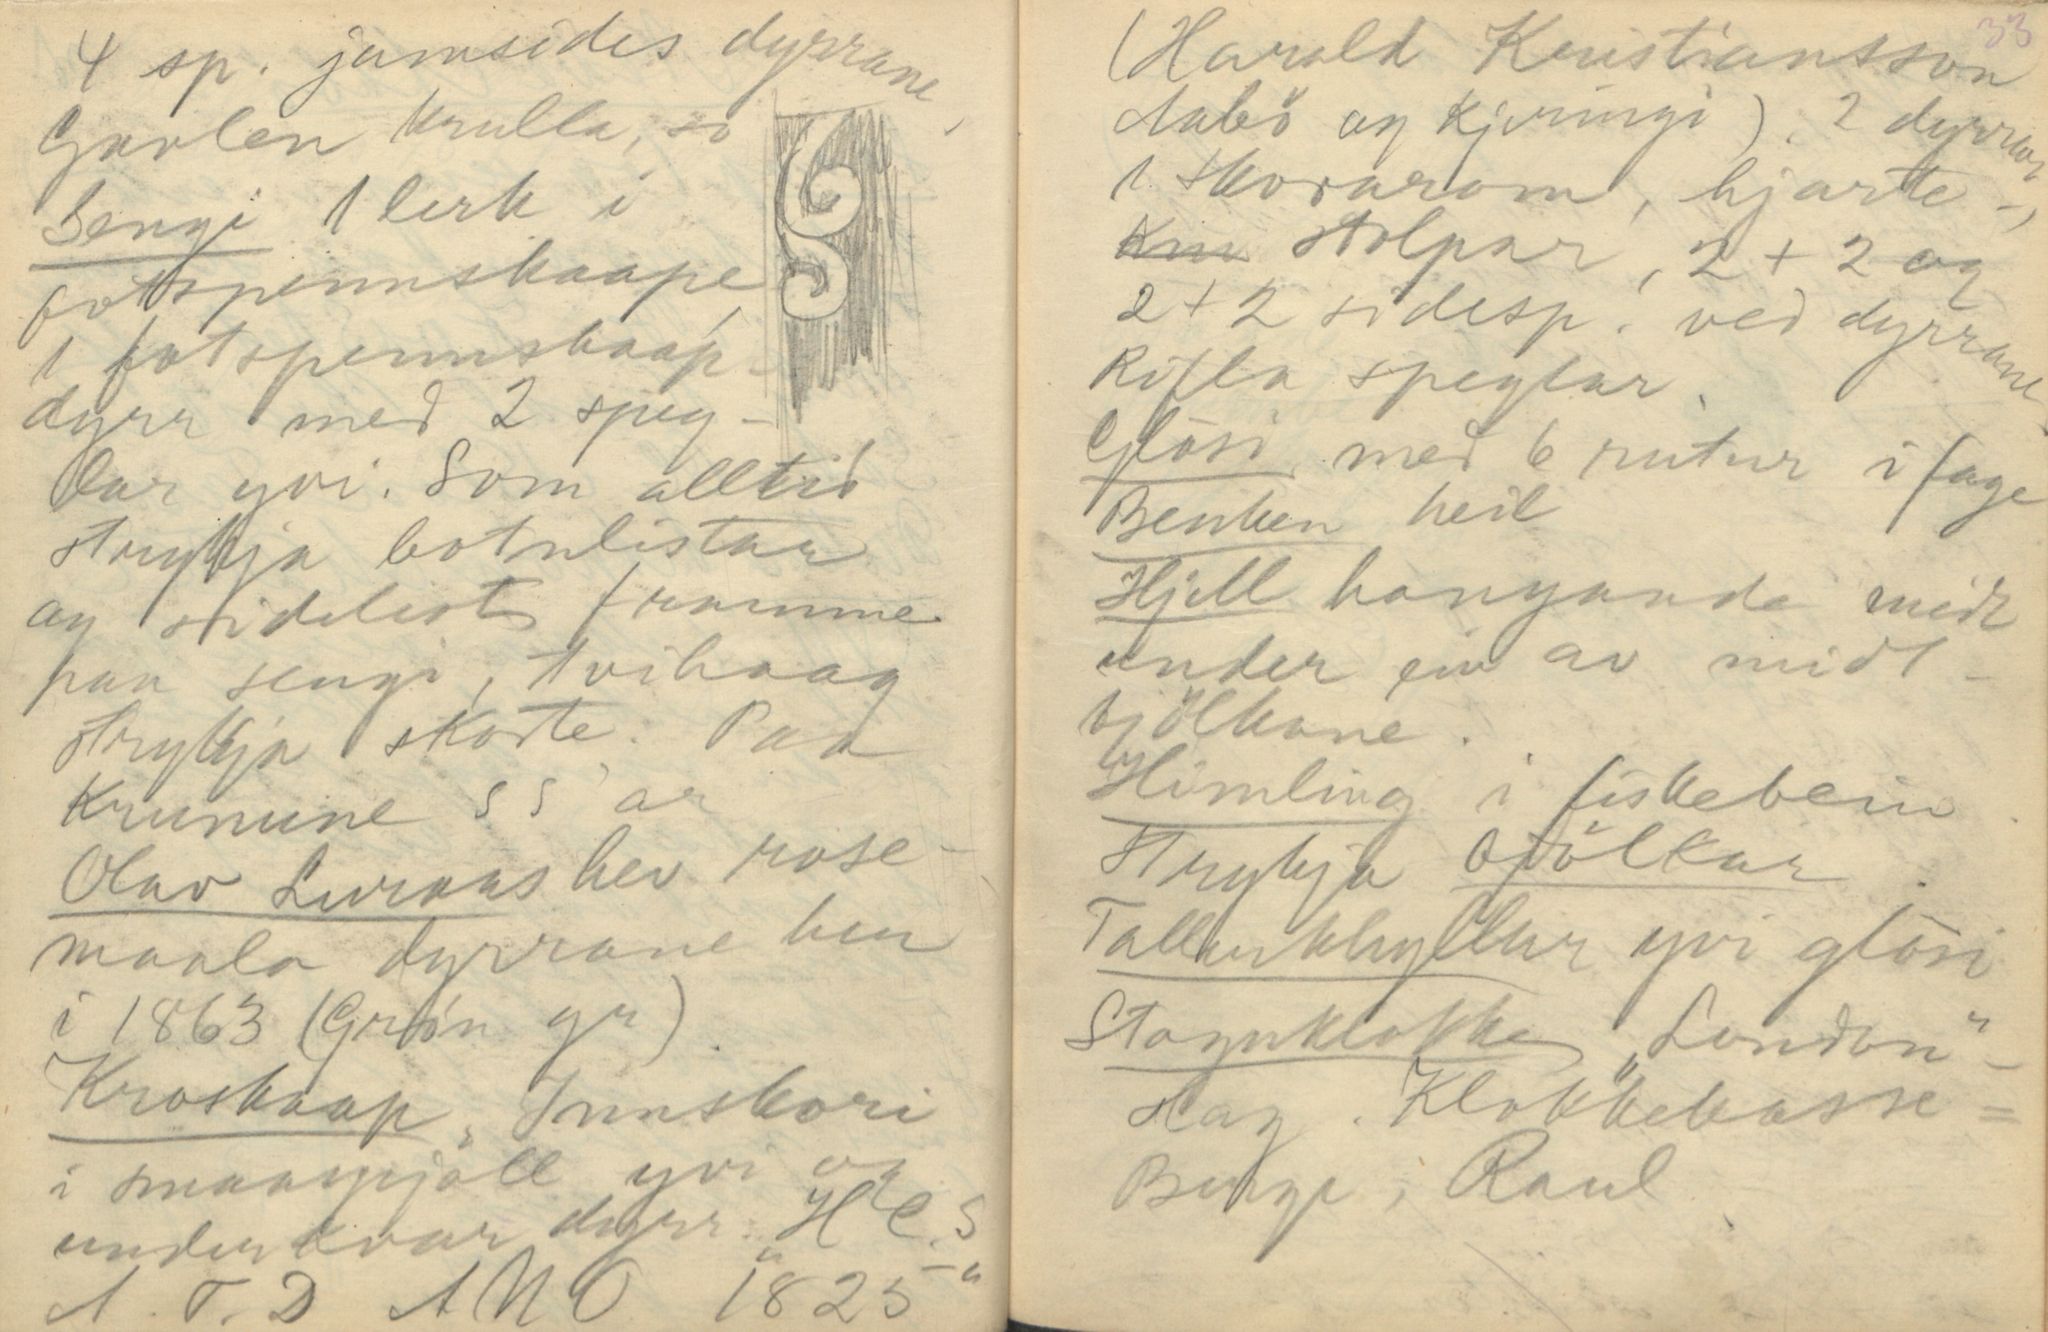 4 sp. jamsides dyrrane,
Gavlen krulla, so
Sengi 1 lerk i
fotspennskaape
1 fotspennskaap-
dyrr med 2 speg-
lar yvi. Som alltid
strykja botnlistar
og sidelist framme
paa sengi, tvihaag
strykja skorte. Paa
Krunune SS'ar
Olav Luraas hev rose-
maala dyrrane her
i 1863 (Grön gr)
Kroskaap, Innskori
i smaagjöll yvi og
under kvar dyrr. "H C. S
A. T. D ANO 1825"
33
(Harald Kristiansson
Aabö og Kjeringi). 2 dyrrar
1 skorarom, hjarte-,
stolpar, 2 + 2 og
2 + 2 sidesp. ved dyrrane
Rifla speglar.
Glösi med 6 rutur i fage
Benken heil
Hjell hangande midt
under ein av midt-
bjölkane.
Himling i fiskebein
Strykja bjölkar.
Tallerkhyllur yvi glösi
Stognklokke "London"-
slag. Klokkekasse =
Berge, Raul